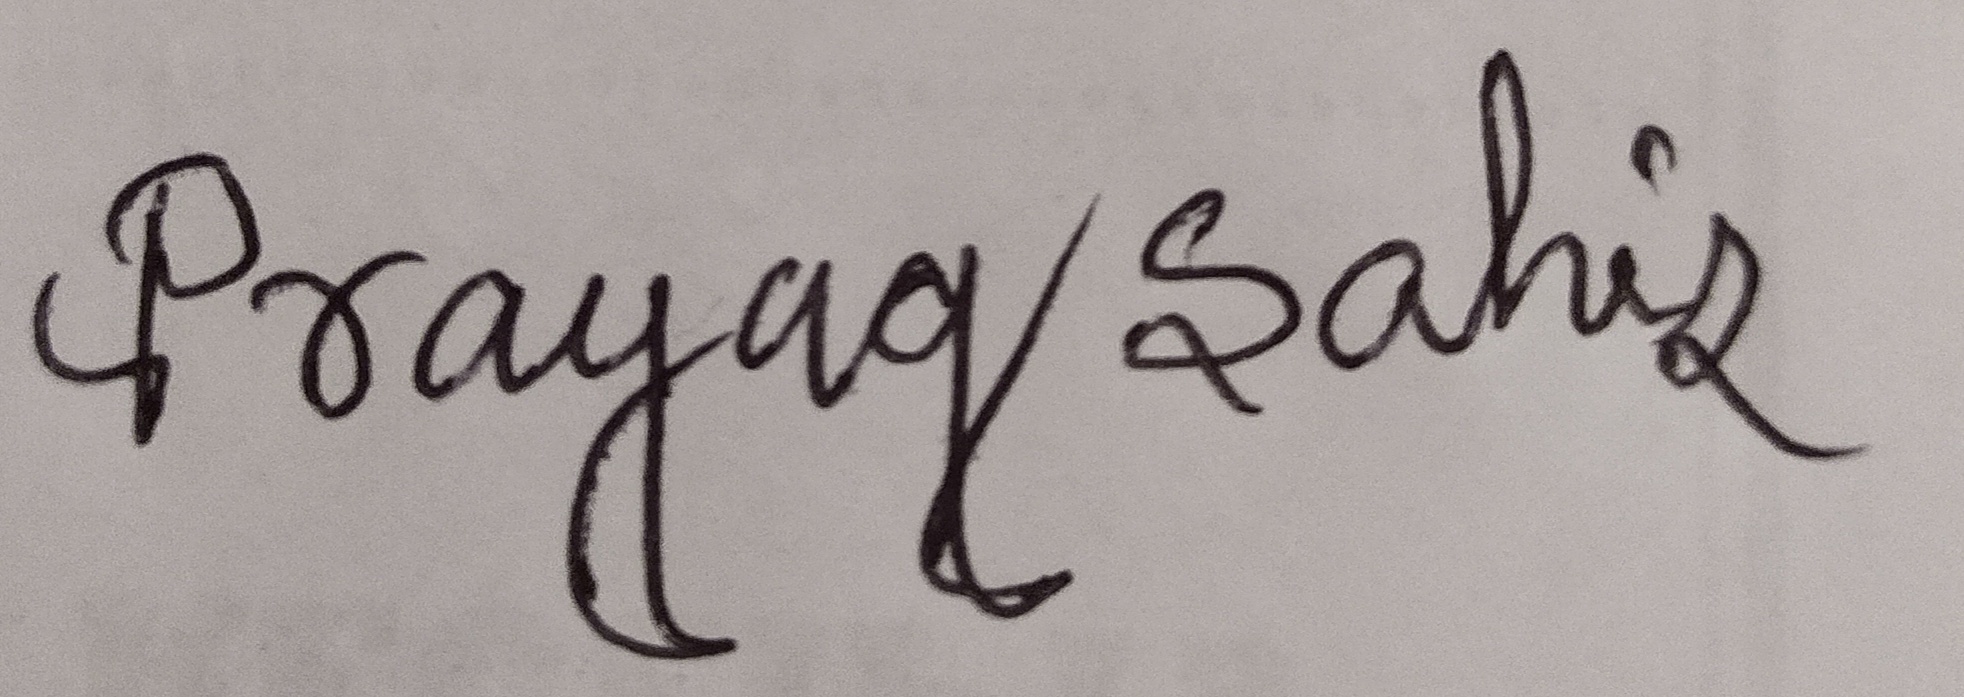 Prayag Sahis